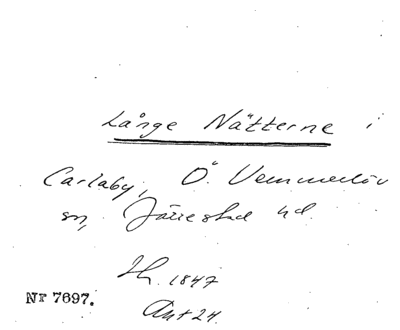 Långe Nätterne i
Carlaby, Ö. Vemmerlöv
sn, Järrestad hd.
Hs. 1847
Ant 24.
Nr 7697.